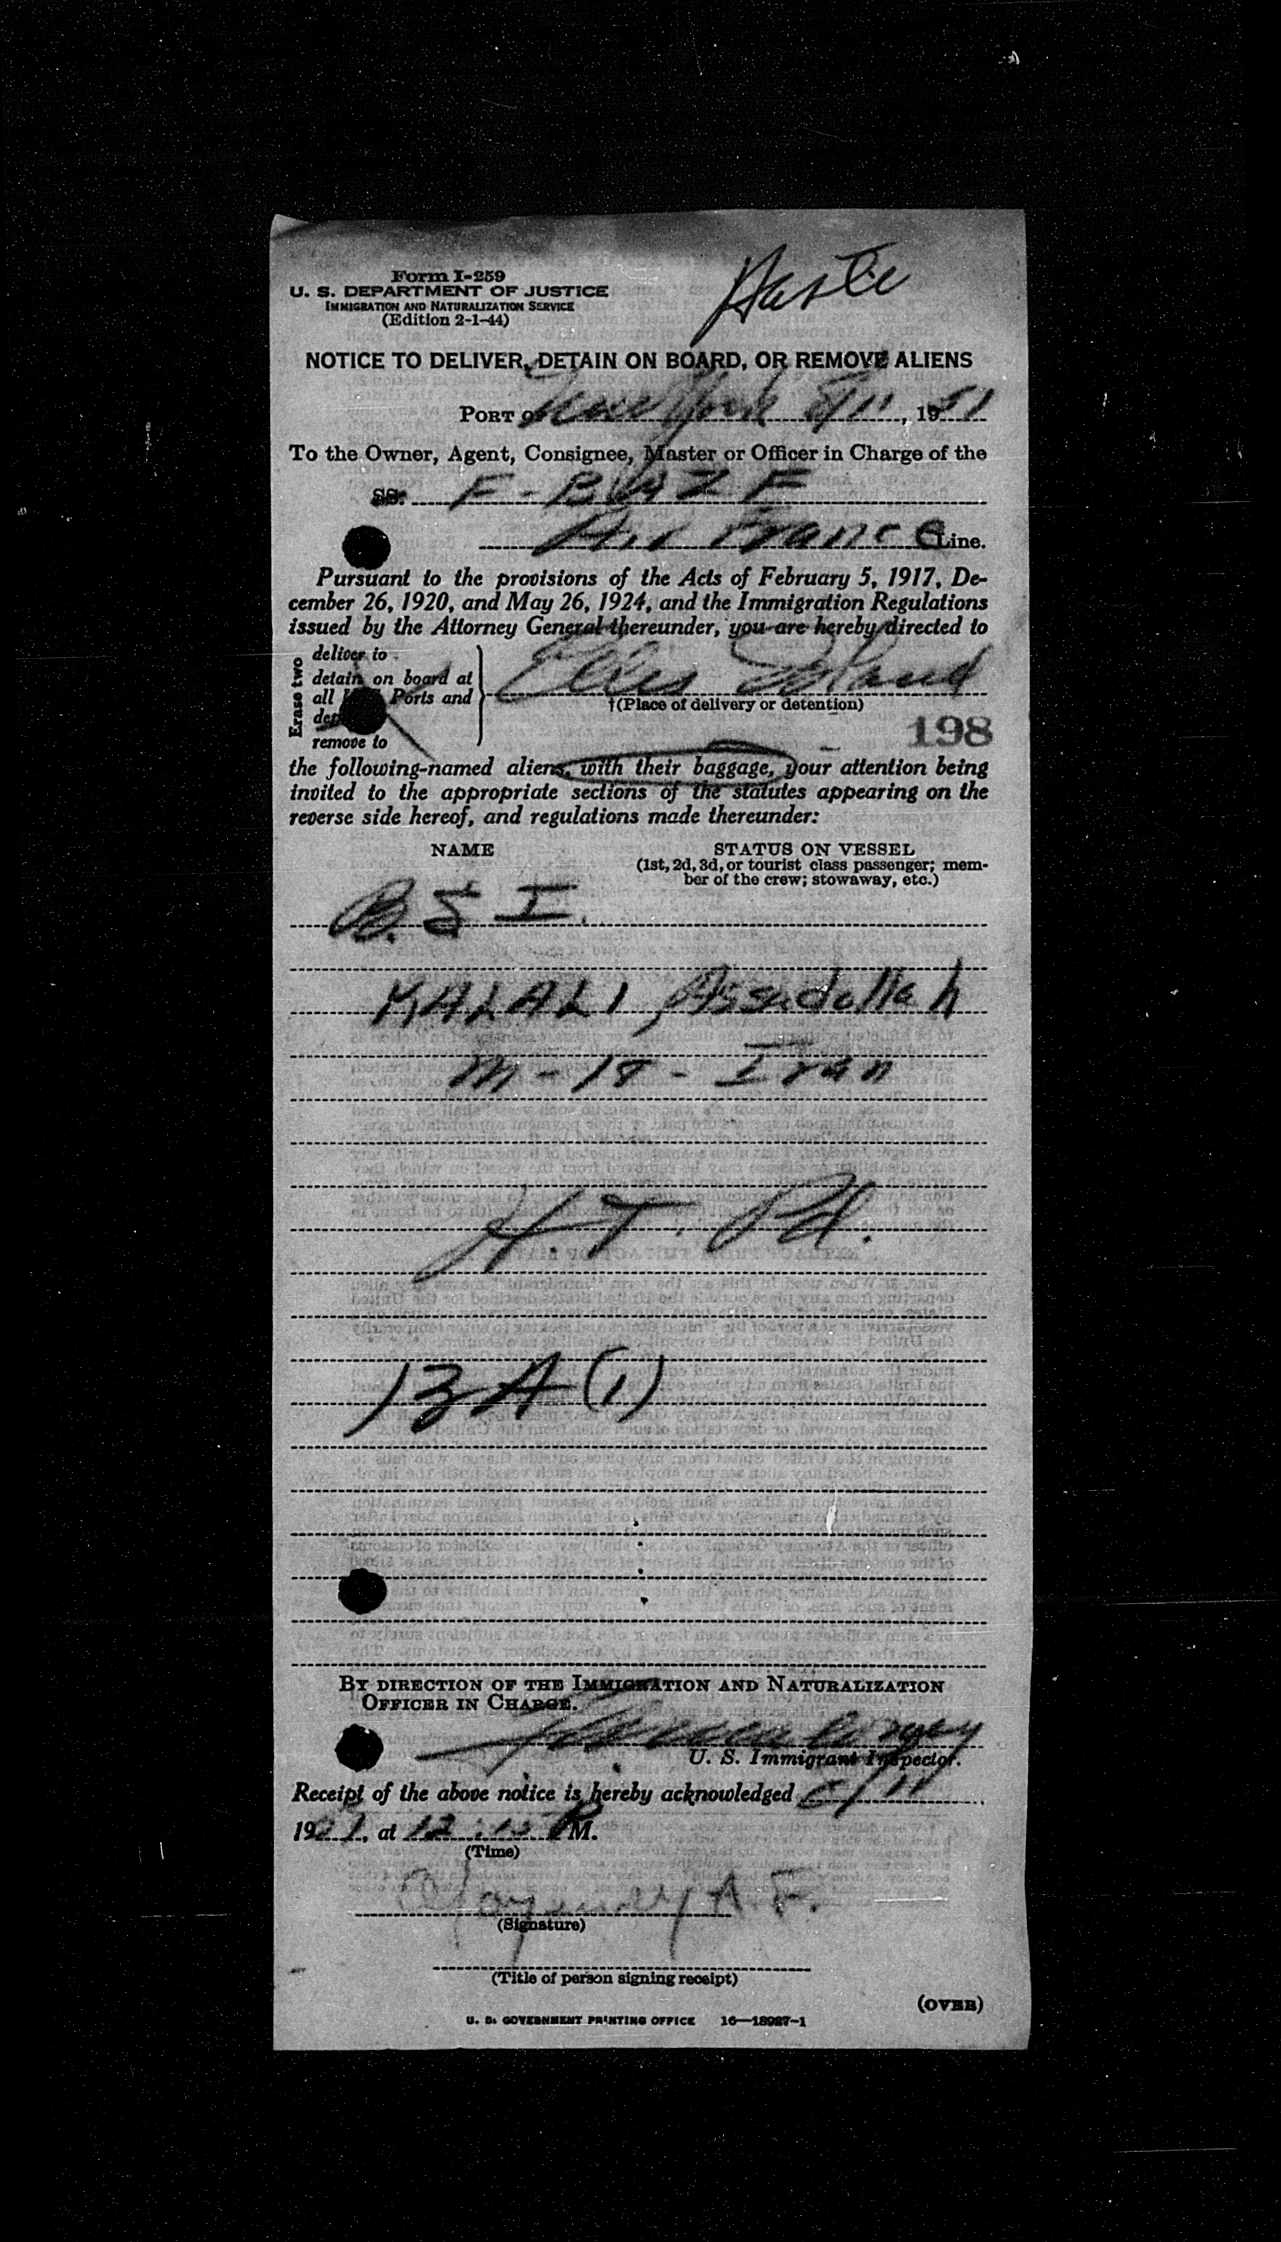 Form I-259
U. S. DEPARTMENT OF JUSTICE
IMMIGRATION AND NATURALIZATION SERVICE
(Edition 2-1-44)
NOTICE TO DELIVER, DETAIN ON BOARD, OR REMOVE ALIENS
PORT of New York 8/11, 1951
To the Owner, Agent, Consignee, Master or Officer in Charge of the
SS. F-BAZF
Air France Line.
Pursuant to the provisions of the Acts of February 5, 1917, De-
cember 26, 1920, and May 26, 1924, and the Immigration Regulations
issued by the Attorney General thereunder, you are hereby directed to
Erase two
deliver to
detain on board at
all Ports and
remove to
Ellis Island
†(Place of delivery or detention)
198
the following-named aliens, with their baggage, your attention being
invited to the appropriate sections of the statutes appearing on the
reverse side hereof, and regulations made thereunder:
NAME
STATUS ON VESSEL
(1st, 2d, 3d, or tourist class passenger; mem-
ber of the crew; stowaway, etc.)
B.S I.
KALALI, Assadollah
M - 18 - Iran
HT. Pd.
13A(1)
BY DIRECTION OF THE IMMIGRATION AND NATURALIZATION
OFFICER IN CHARGE.
U. S. Immigrant Inspector.
Receipt of the above notice is hereby acknowledged 8/11
1951, at 12:15 P M.
(Time)
A. F.
(Signature)
(Title of person signing receipt)
(OVER)
U. S. GOVERNMENT PRINTING OFFICE 16—18927-1